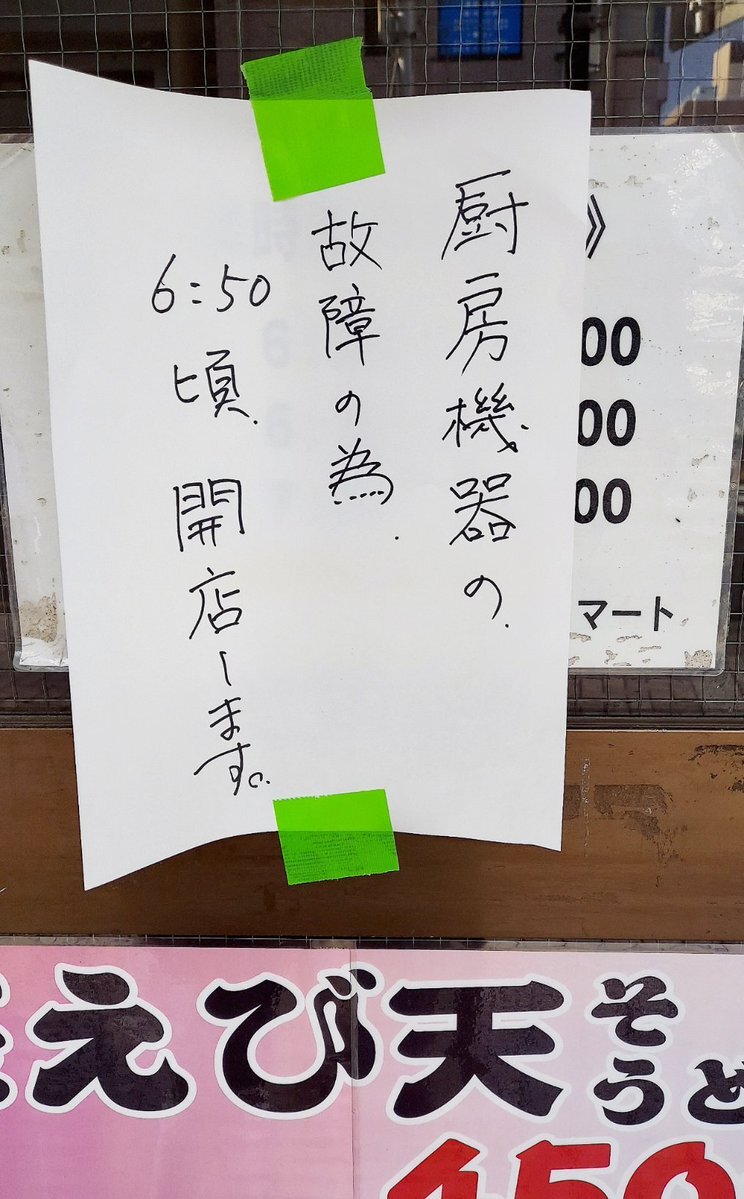 厨房機器の
故障の為.
6:50頃 開店します。
》
00
00
00
マート
えび天
そ
うど
450